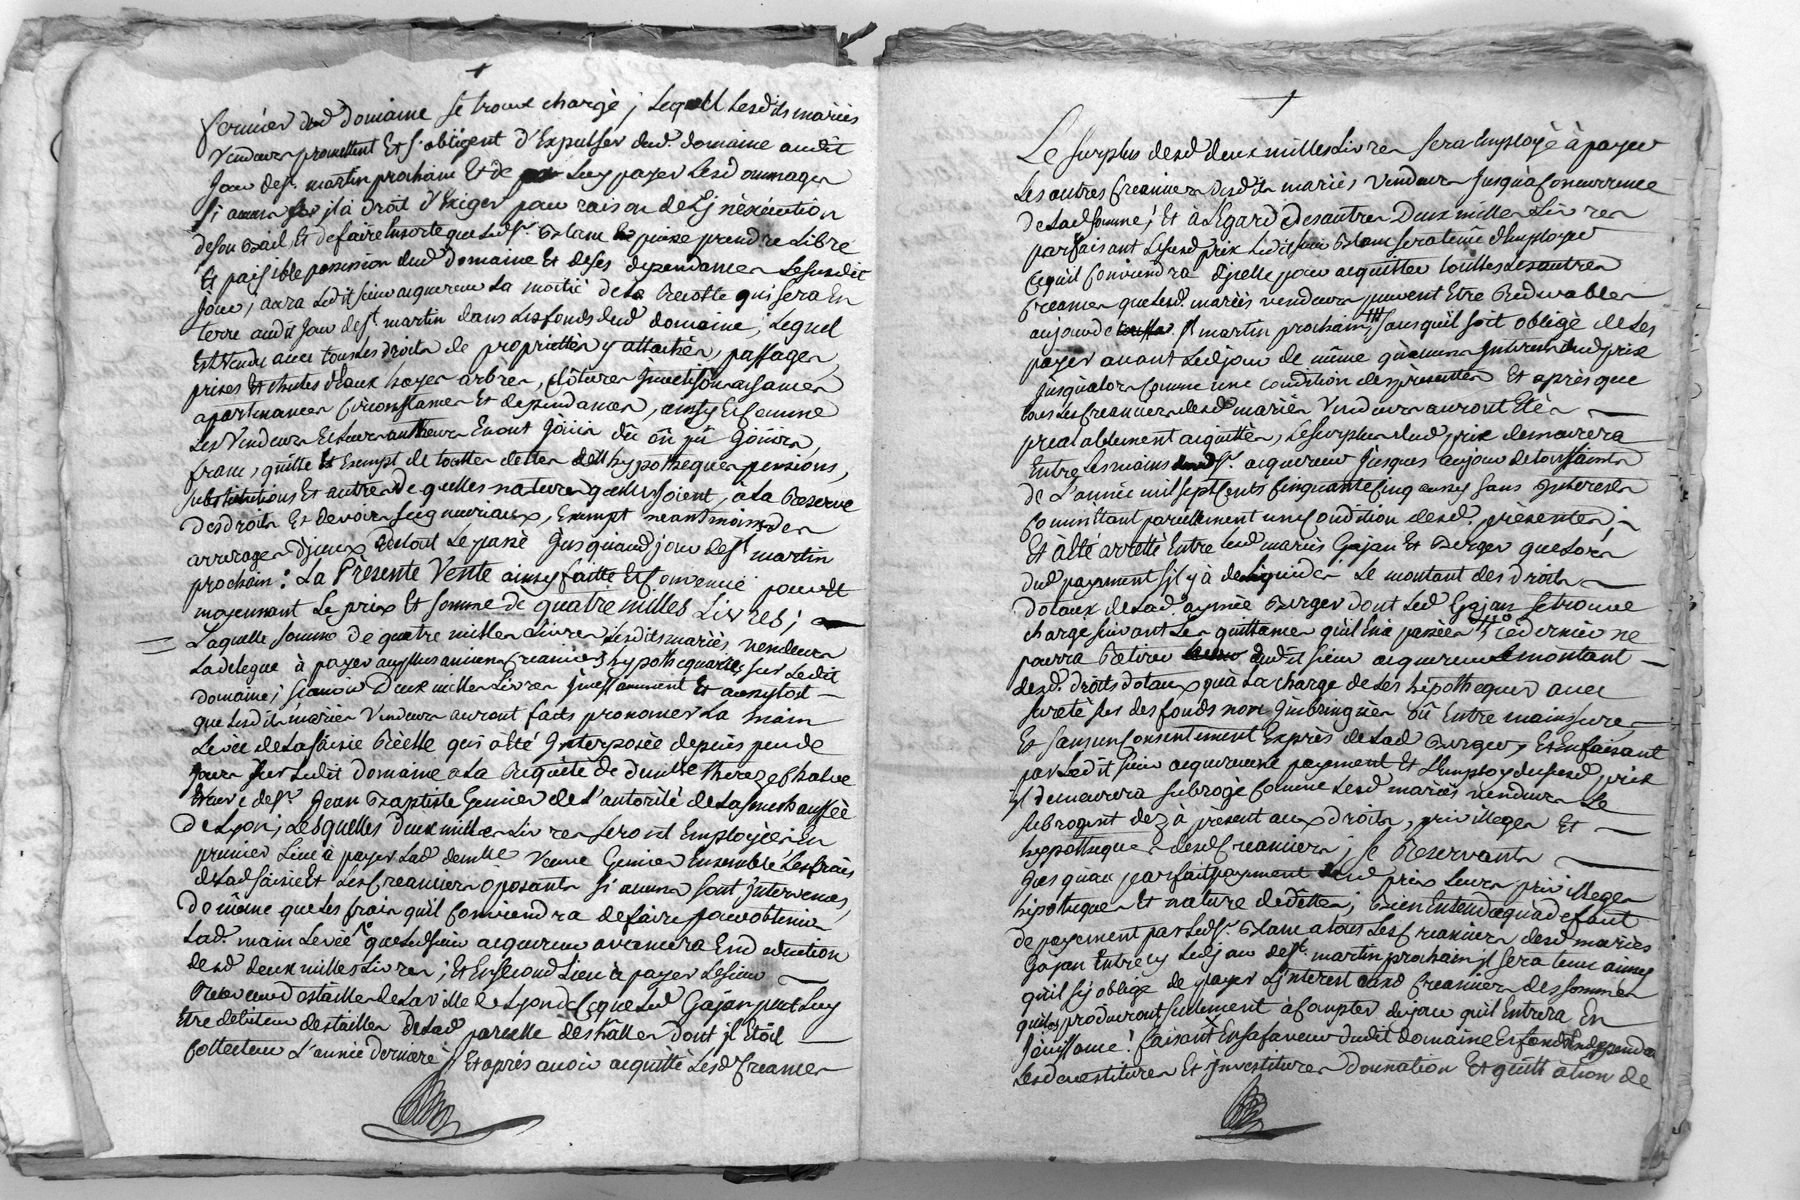 fermier dud domaine se trouve chargé ; lequel lesdits mariés
vendeurs promettent et s'obligent d'expulser dud. domaine audit
jour de st. martin prochain et de luy payer les dommages
si aucuns il a droit d'exiger pour raison de l'jnéxécution
de son bail, et de faire ensorte que led sr. puisse prendre libre
et paisible possession dud domaine et de ses dependances lesusdit
jour ; aura ledit sieur acquereur la moitié de la Recolte qui sera en
terre audit jour de st. martin dans les fonds dud domaine ; lequel
est vendu avec tous les droits de proprietter y attachés, passages,
prises et chutes d'eaux hayes arbres, clôtures aisances
apartenances circonstances et dependances, ainsy et comme
les vendeurs et leurs autheurs en ont joüi dû oû pû joüir,
franc, quitte et exempt de toutes dettes hypotheques pensions,
substitutions et autres de quelles natures quelles soient, a la Reserve
des droits et devoirs seigneuriaux, exempt neantmoins des
arrerages d'jceux de tout le passé jusqu'aud jour de st. martin
prochain : La Presente Vente ainsy faitte et convenüe pour et
moyennant le prix et somme de quatre milles Livres ;
Laquelle somme de quatre milles Livres lesdits mariés vendeurs
la delegue à payer aux plus anciens creanciers hypothequaires sur ledit
domaine ; sçavoir deux milles Livres jncessamment et aussytost
que lesdits mariés vendeurs auront faits prononcer la main
Levée de la saisie Réelle qui a été Interposée depuis peu de
jours sur ledit domaine a la Requête de d'moiselle thereze
veuve de sr. jean Baptiste Genier de l'autorité de la senechaussée
de Lyon ; lesquelles deux milles Livres seront employées en
premier lieu à payer lad demlle veuve Genier ensemble les frais
de lad saisie et les creanciers oposants si aucuns sont jntervenus,
de même que les frais qu'il conviendra de faire pour obtenir
lad. main levée que led sieur acquereur avancera en deduction
desd deux milles Livres ; et en second lieu à payer le sieur
Receveur des tailles de la ville de Lyon de ce que led Gajan peut luy
être débiteur des tailles de lad paroisse des halles dont il étoit
collecteur l'année derniere ; et après avoir acquitté lesd creances
Le surplus desd deux milles Livres sera employé à payer
les autres creanciers desdits mariés vendeurs jusqu'à concurrence
de lad somme ; et à l'egard des autres deux milles Livres
parfaisant lesusd prix ledit sieur sera tenû d'employer
ce qu'il conviendra d'jcelle pour acquitter touttes les autres
creances que lesd. mariés vendeurs peuvent être Redevables
au jour de st martin prochain, sans qu'il soit obligé de les
payer avant led jour de même qu'aucuns jnterests dud prix
jusqu'alors comme une condition des présentes et après que
tous les creanciers desd mariés vendeurs auront été
prealablement acquittés, le surplus dud prix demeurera
entre les mains dud sr. acquereur jusques au jour de toussaints
de l'année mil sept cents cinquante cinq aussy sans jnterests
comme etant pareillement une condition desd. présentes ;
Et a été arretté entre lesd mariés Gajan et Berger que lors
dud payement s'il y a de liquider le montant des droits
dotaux de lad. aymée Berger dont led Gajan se trouve
chargé suivant les quittances qu'il en a passées, ce dernier ne
pourra Retirer dudit sieur acquereur le montant
desd. droits dotaux qu'à la charge de les hipothequer avec
sureté sur des fonds non oû entre mains sures,
et sans un consentement exprès de lad Berger, et en faisant
par ledit sieur acquereur le payement et l'employ dususd prix
jl demeurera subrogé comme lesd mariés vendeurs le
subrogent dez à présent aux droits, privilleges et
hypotheques desd creanciers ; se Reservants
jusqu'au parfait payement dud prix leurs privilleges
hipotheques et nature de dettes ; Bien entendu qu'à defaut
de payement par led sr. a tous les creanciers desd mariés
Gajan entre cy led jour de st. martin prochain jl sera tenu ainsy
qu'il s'y oblige de payer l'interest auxd creanciers des sommes
qui les produiront seulement à compter du jour qu'il entrera en
jouissance ! faisant en sa faveur dudit domaine et fonds en dependants
les devestitures et jnvestitures donnation et quittation de